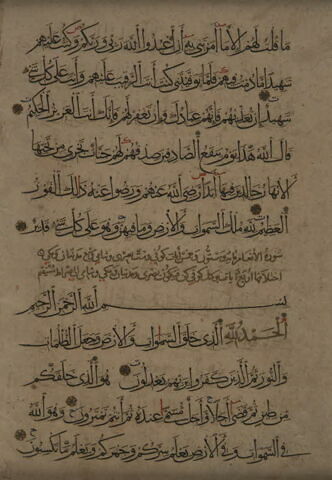 ما قلت لهم إلا ما أمرتني به أن اعبدوا الله ربي وربكم وكنت عليهم
شهيدا ما دمت فيهم فلما توفيتني كنت أنت الرقيب عليهم وأنت على كل شيء
شهيد إن تعذبهم فإنهم عبادك وإن تغفر لهم فإنك أنت العزيز الحكيم
قال الله هذا يوم ينفع الصادقين صدقهم لهم جنات تجري من تحتها
الأنهار خالدين فيها أبدا رضي الله عنهم ورضوا عنه ذلك الفوز
العظيم لله ملك السموات والأرض وما فيهن وهو على كل شيء قدير
سورة الأنعام
بسم الله الرحمن الرحيم
الحمد لله الذي خلق السموات والأرض وجعل الظلمات
والنور ثم الذين كفروا بربهم يعدلون هو الذي خلقكم
من طين ثم قضى أجلا وأجل مسمى عنده ثم أنتم تمترون وهو الله
في السموات وفي الأرض يعلم سركم وجهركم ويعلم ما تكسبون